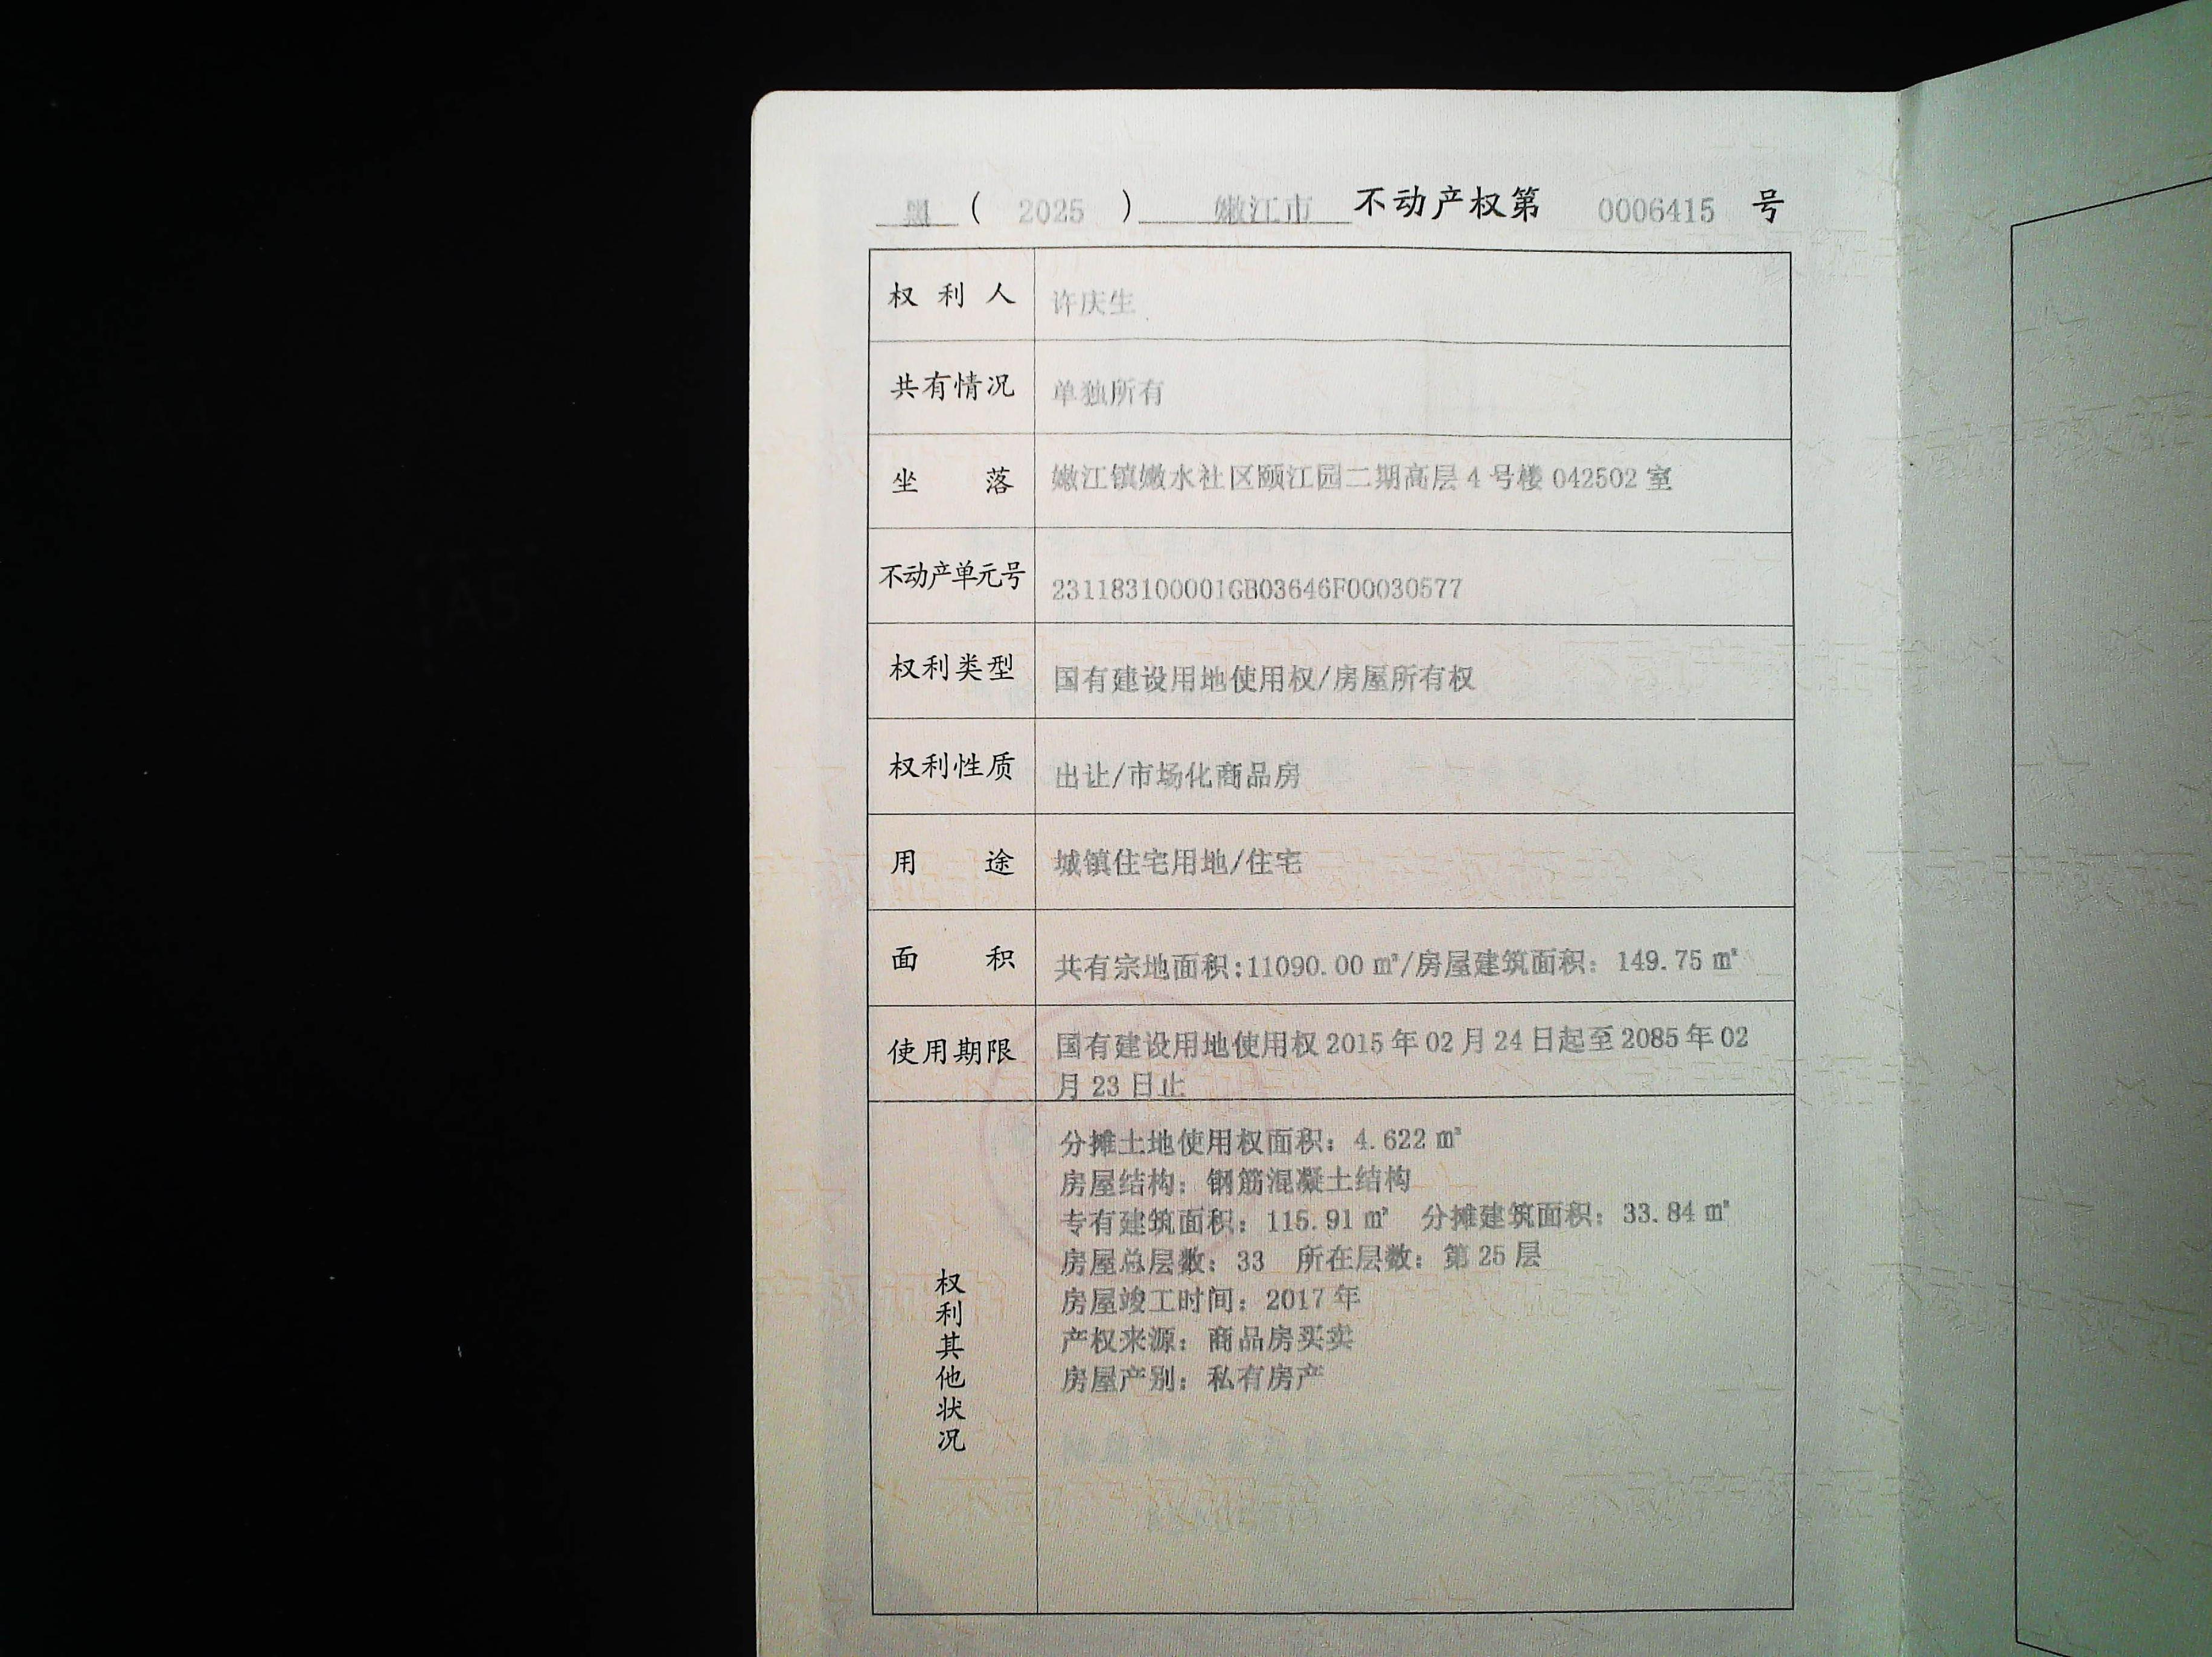 黑 ( 2025 ) 嫩江市 不动产权第 0006415 号
权利人 许庆生
共有情况 单独所有
坐落 嫩江镇嫩水社区颐江园二期高层4号楼042502室
不动产单元号 231183100001GB03646F00030577
权利类型 国有建设用地使用权/房屋所有权
权利性质 出让/市场化商品房
用途 城镇住宅用地/住宅
面积 共有宗地面积:11090.00㎡/房屋建筑面积：149.75㎡
使用期限 国有建设用地使用权2015年02月24日起至2085年02
月23日止
权利其他状况
分摊土地使用权面积：4.622㎡
房屋结构：钢筋混凝土结构
专有建筑面积：115.91㎡ 分摊建筑面积：33.84㎡
房屋总层数：33 所在层数：第25层
房屋竣工时间：2017年
产权来源：商品房买卖
房屋产别：私有房产